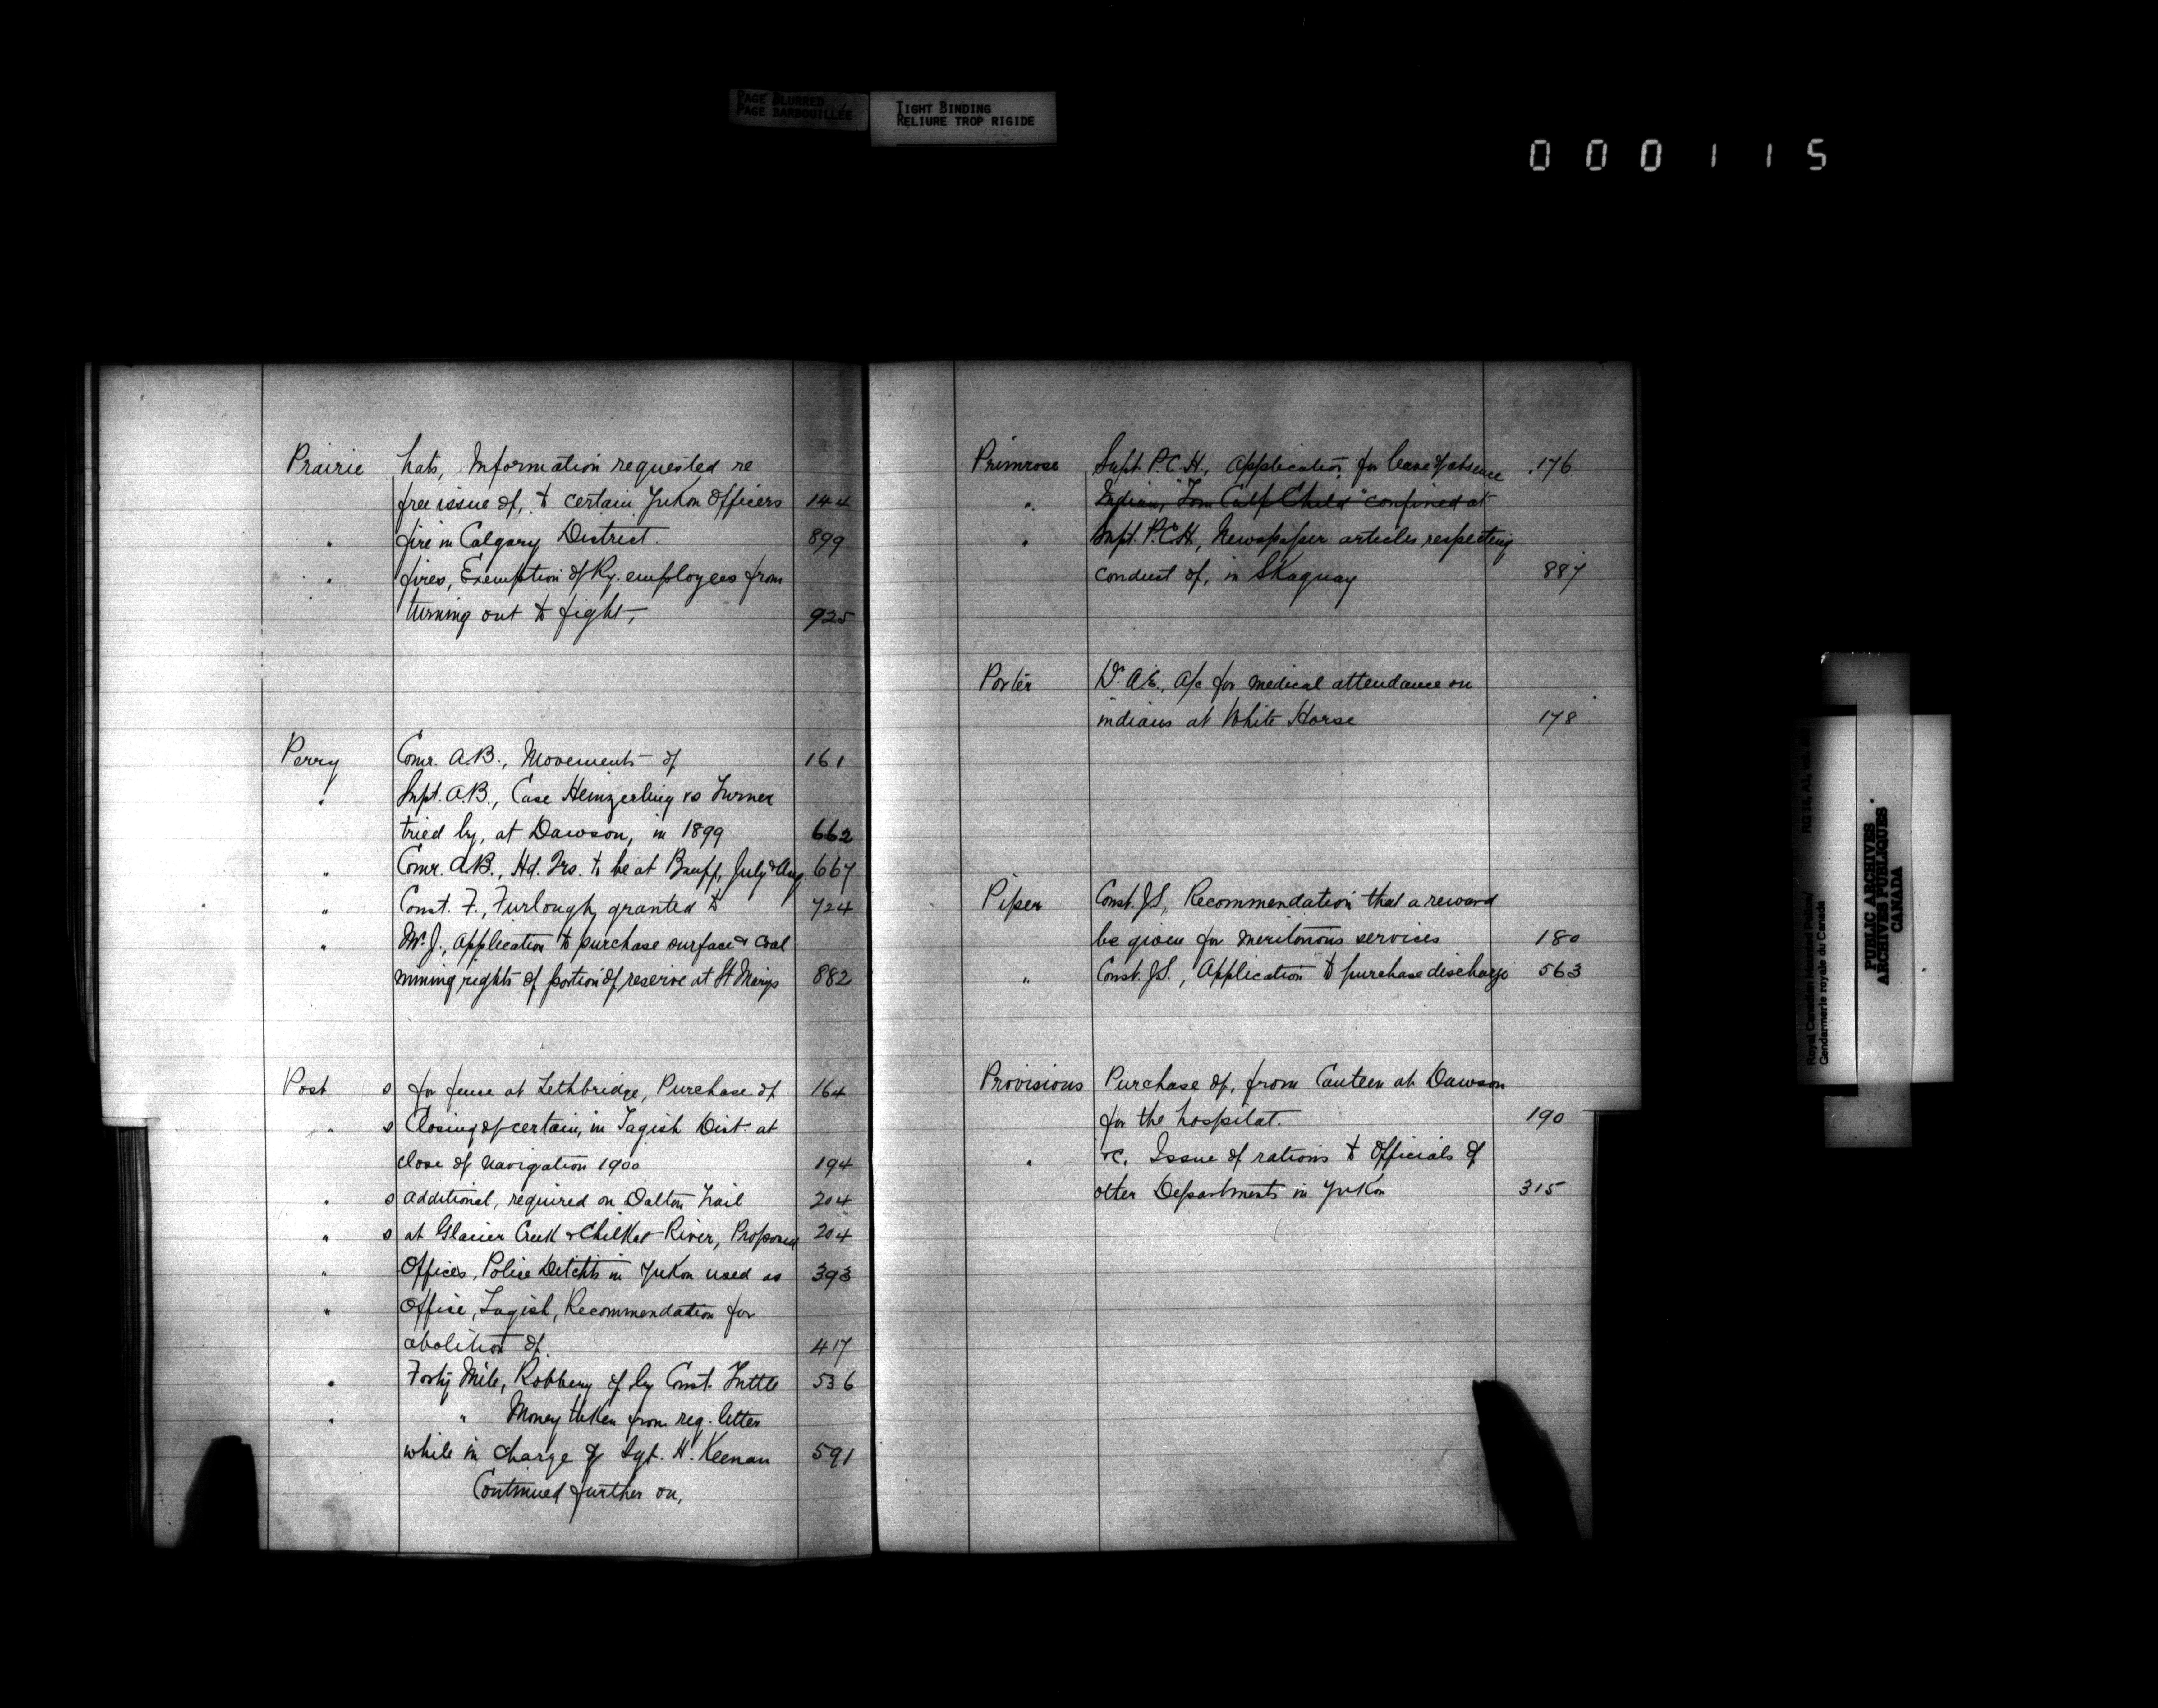 PAGE BLURRED
PAGE BARBOUILLÉE
TIGHT BINDING
RELIURE TROP RIGIDE
000115
Prairie hats, Information requested re
free issue of, to certain Yukon Officers 144
" fire in Calgary District. 899
" fires, Exemption of Ry. employees from
turning out to fight, 925
Perry Comr. A.B., Movements of 161
" Supt. A.B., Case Heinzerling vs Turner
tried by, at Dawson, in 1899 662
" Comr. A.B., Hd. Qrs. to be at Banff, July & Aug. 667
" Const. F., Furlough, granted to 724
" Mr. J., Application to purchase surface & coal
mining rights of portion of reserve at St Marys 882
Post s for fence at Lethbridge, Purchase of 164
" s Closing of certain, in Tagish Dist. at
close of navigation 1900 194
" s additional, required on Dalton Trail 204
" s at Glacier Creek & Chilkat River, Proposed 204
" Offices, Police Detchts in Yukon used as 393
" Office, Tagish, Recommendation for
abolition of. 417
" Forty Mile, Robbery of by Const. Tuttle 536
" " Money taken from reg. letter
while in charge of Sgt. H. Keenan 591
Continued further on,
Primrose Supt. P.C.H., Application for leave of absence 176
" Indian, "Tom Calf Child" confined at
" Supt. P.C.H., Newspaper articles respecting
conduct of, in Skaguay 887
Porter Dr. A.E., A/c for medical attendance on
indians at White Horse 178
Piper Const. J.S., Recommendation that a reward
be given for meritorious services 180
" Const. J.S., Application to purchase discharge 563
Provisions Purchase of, from Canteen at Dawson
for the hospital. 190
" &c. Issue of rations to Officials of
other Departments in Yukon 315
Gendarmerie royale du Canada
PUBLIC ARCHIVES
ARCHIVES PUBLIQUES
CANADA